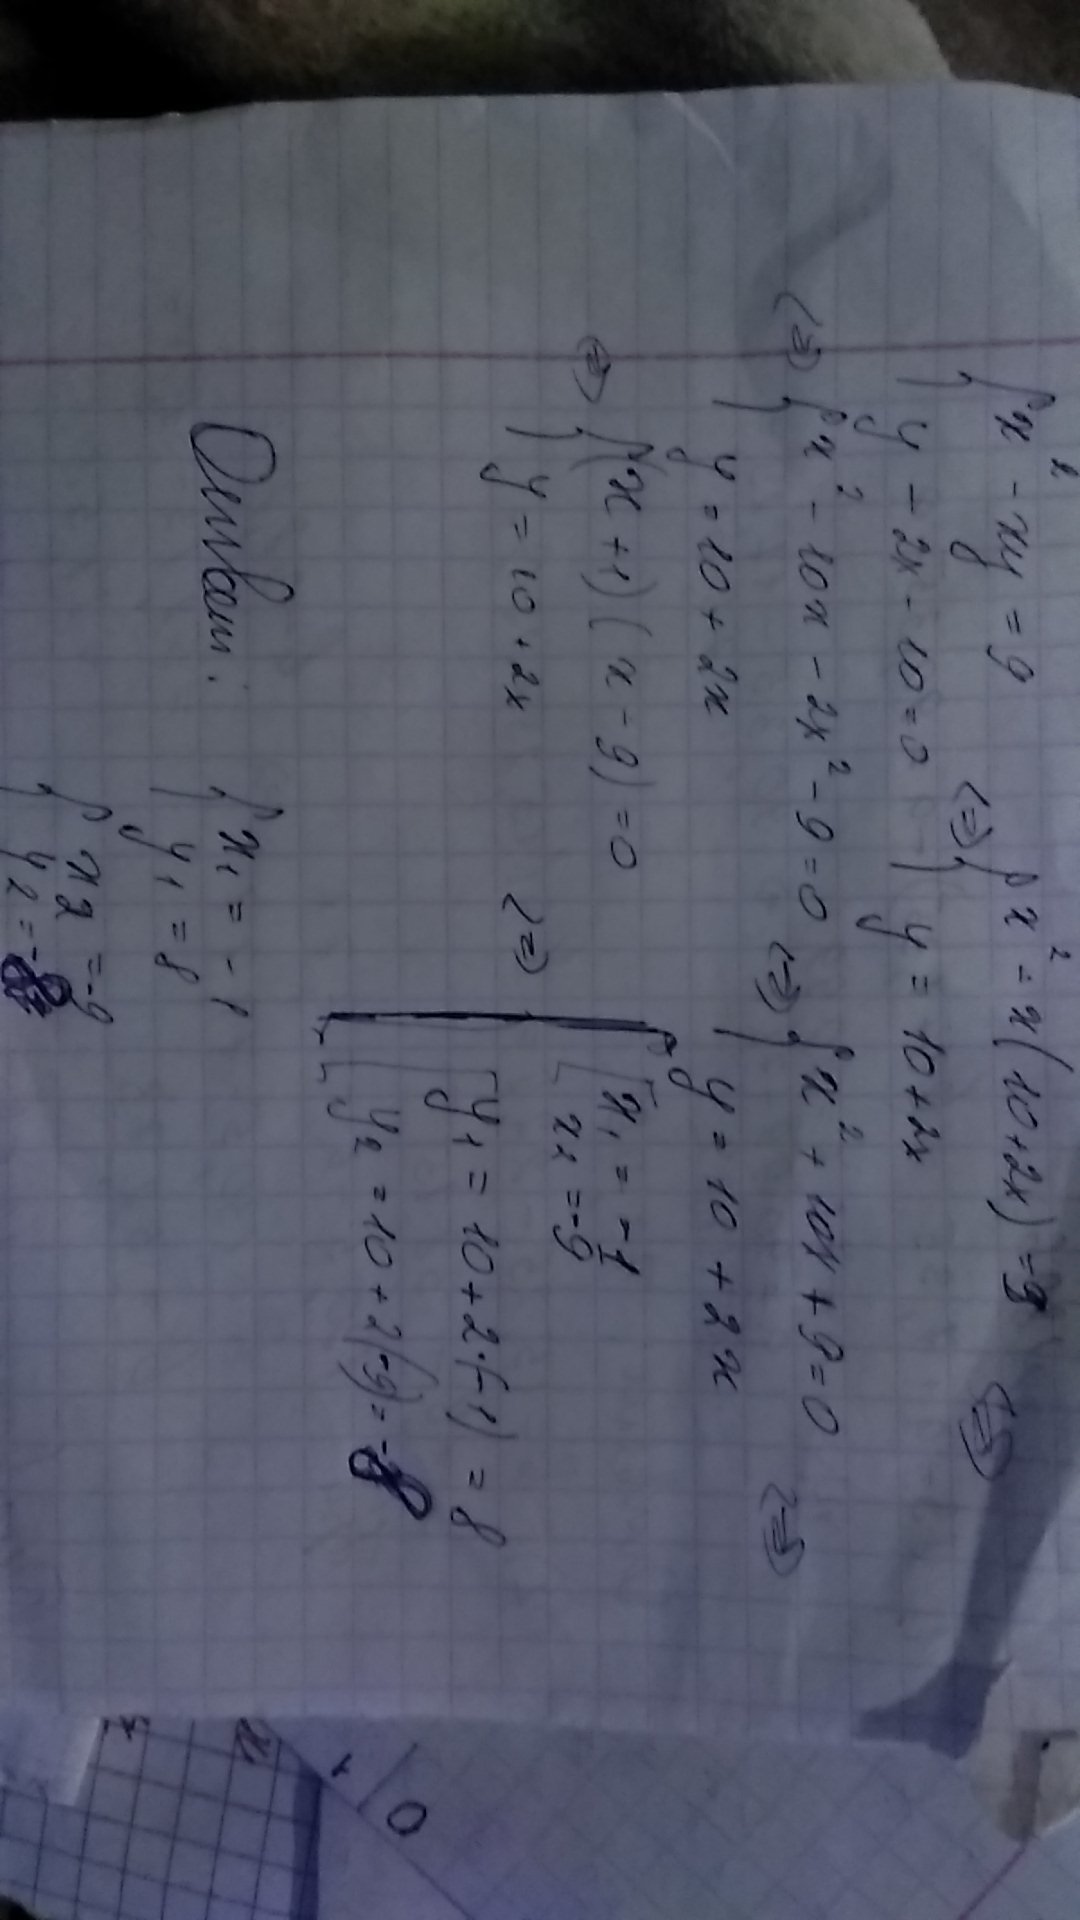 { x² - xy = 9
{ y - 2x - 10 = 0
<=> { x² = x(10+2x) = 9
{ y = 10+2x
<=>
<=> { x² - 10x - 2x² - 9 = 0
{ y = 10 + 2x
<=> { x² + 10x + 9 = 0
{ y = 10 + 2x
<=>
<=> { (x+1)(x-9) = 0
{ y = 10 + 2x
<=> { [ x₁ = -1
x₂ = -9
[ y₁ = 10+2·(-1) = 8
[ y₂ = 10+2(-9) = -8
Ответ: { x₁ = -1
{ y₁ = 8
{ x2 = -9
{ y2 = -8
x
0